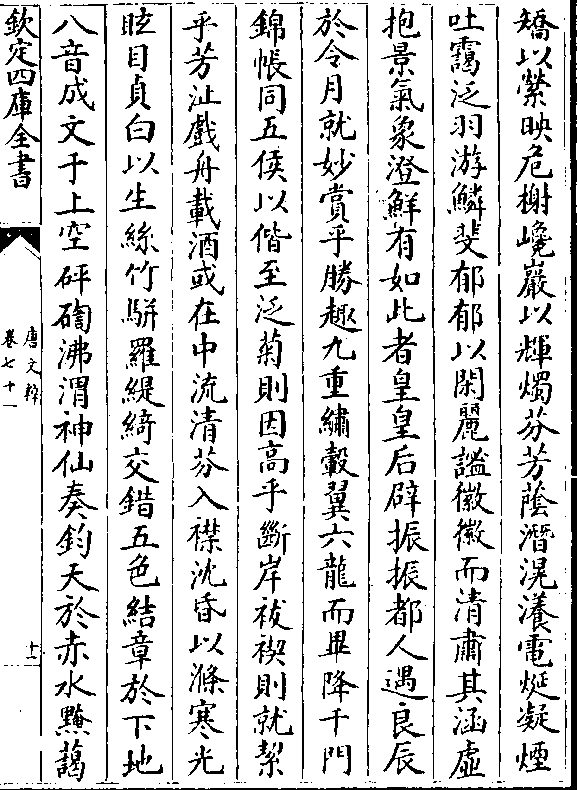 矯以縈映危榭巉巖以輝燭芬芳蔭潛滉瀁電烻凝煙
吐靄泛羽游鱗斐郁郁以閑麗謐徽徽而清肅其涵虛
抱景氣象澄鮮有如此者皇皇后辟振振都人遇良辰
於令月就妙賞乎勝趣九重繡轂翼六龍而畢降千門
錦帳同五侯以偕至泛菊則因高乎斷岸祓禊則就絜
乎芳沚戲舟載酒或在中流清芬入襟沈昏以滌寒光
眩目貞白以生絲竹駢羅緹綺交錯五色結章於下地
八音成文于上空砰磕沸渭神仙奏鈞天於赤水黤藹
欽定四庫全書
唐文粹
卷七十一
十二